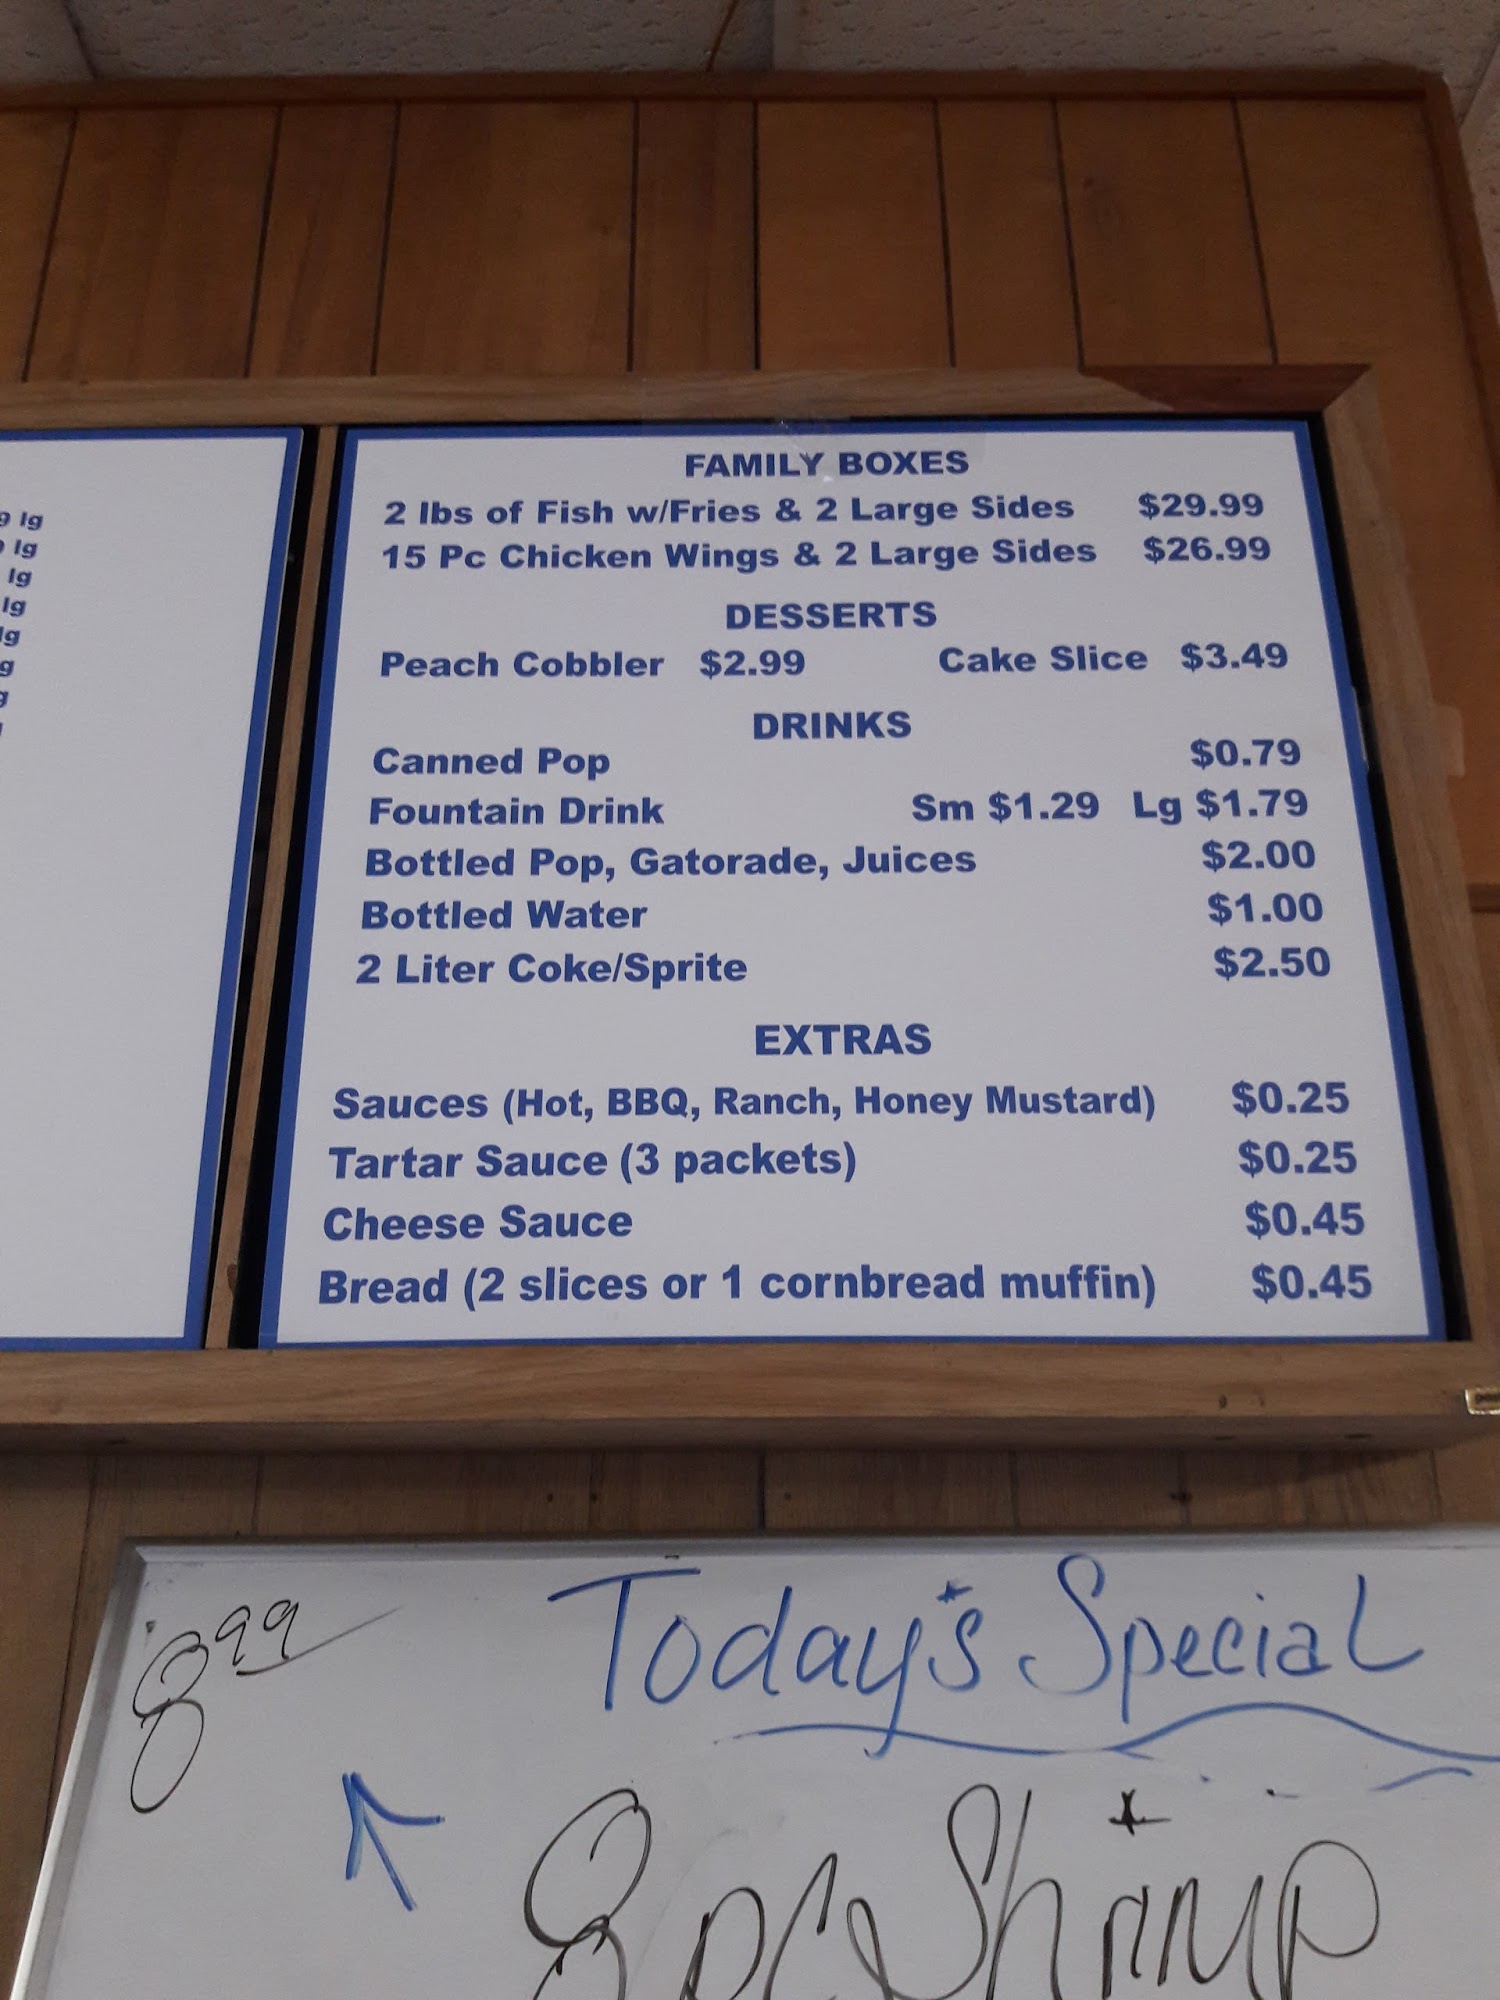 9 lg
lg
lg
lg
lg
g
FAMILY BOXES
2 lbs of Fish w/Fries & 2 Large Sides $29.99
15 Pc Chicken Wings & 2 Large Sides $26.99
DESSERTS
Peach Cobbler $2.99 Cake Slice $3.49
DRINKS
Canned Pop $0.79
Fountain Drink Sm $1.29 Lg $1.79
Bottled Pop, Gatorade, Juices $2.00
Bottled Water $1.00
2 Liter Coke/Sprite $2.50
EXTRAS
Sauces (Hot, BBQ, Ranch, Honey Mustard) $0.25
Tartar Sauce (3 packets) $0.25
Cheese Sauce $0.45
Bread (2 slices or 1 cornbread muffin) $0.45
8 99 Today's Special
8 pc Shrimp